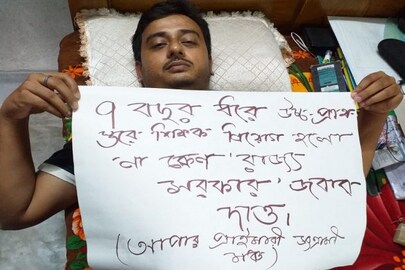 ৭ বছর ধরে উচ্চ-প্রাথ
স্তরে শিক্ষক নিয়োগ হলো
না কেন 'রাজ্য
সরকার' জবাব
দাও।
(আপার প্রাইমারী চাকরী
মঞ্চ)